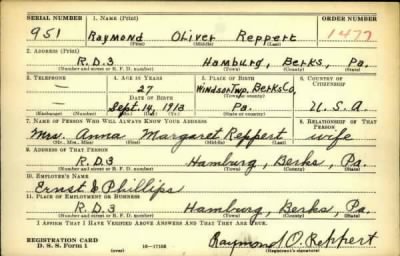 SERIAL NUMBER 1. NAME (Print) ORDER NUMBER
951 Raymond Oliver Reppert 1477
(First) (Middle) (Last)
2. ADDRESS (Print)
R.D.3 Hamburg, Berks, Pa.
(Number and street or R. F. D. number) (Town) (County) (State)
3. TELEPHONE 4. AGE IN YEARS 5. PLACE OF BIRTH 6. COUNTRY OF CITIZENSHIP
— 27 Windsor Twp. Berks Co.
DATE OF BIRTH
— Sept. 14, 1913 Pa. U.S.A.
(Exchange) (Number) (Mo.) (Day) (Yr.) (State or country)
7. NAME OF PERSON WHO WILL ALWAYS KNOW YOUR ADDRESS 8. RELATIONSHIP OF THAT PERSON
Mrs. Anna Margaret Reppert wife
(Mr., Mrs., Miss) (First) (Middle) (Last)
9. ADDRESS OF THAT PERSON
R.D.3 Hamburg, Berks, Pa.
(Number and street or R. F. D. number) (Town) (County) (State)
10. EMPLOYER'S NAME
Ernst Phillips
11. PLACE OF EMPLOYMENT OR BUSINESS
R.D.3 Hamburg, Berks, Pa.
(Number and street or R. F. D. number) (Town) (County) (State)
I AFFIRM THAT I HAVE VERIFIED ABOVE ANSWERS AND THAT THEY ARE TRUE.
REGISTRATION CARD
D. S. S. Form 1 (over) 16—17105 Raymond O. Reppert
(Registrant's signature)